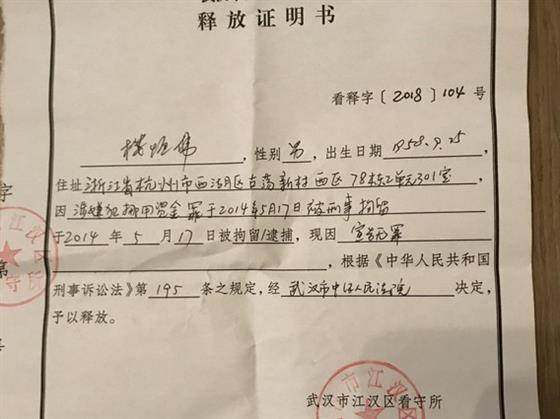 释放证明书
看释字〔2018〕104号
性别 男，出生日期 1958.9.25
住址浙江省杭州市西湖区古荡新村西区78栋2单元301室
因涉嫌犯挪用资金罪于2014年5月17日被刑事拘留
于2014年5月17日被拘留/逮捕，现因宣告无罪
，根据《中华人民共和国
刑事诉讼法》第195条之规定，经武汉市中级人民法院决定，
予以释放。
武汉市江汉区看守所